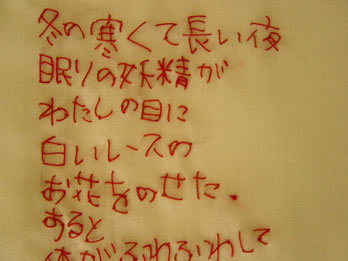 冬の寒くて長い夜
眠りの妖精が
わたしの目に
白いレースの
お花をのせた.
あると
体がふわふわして